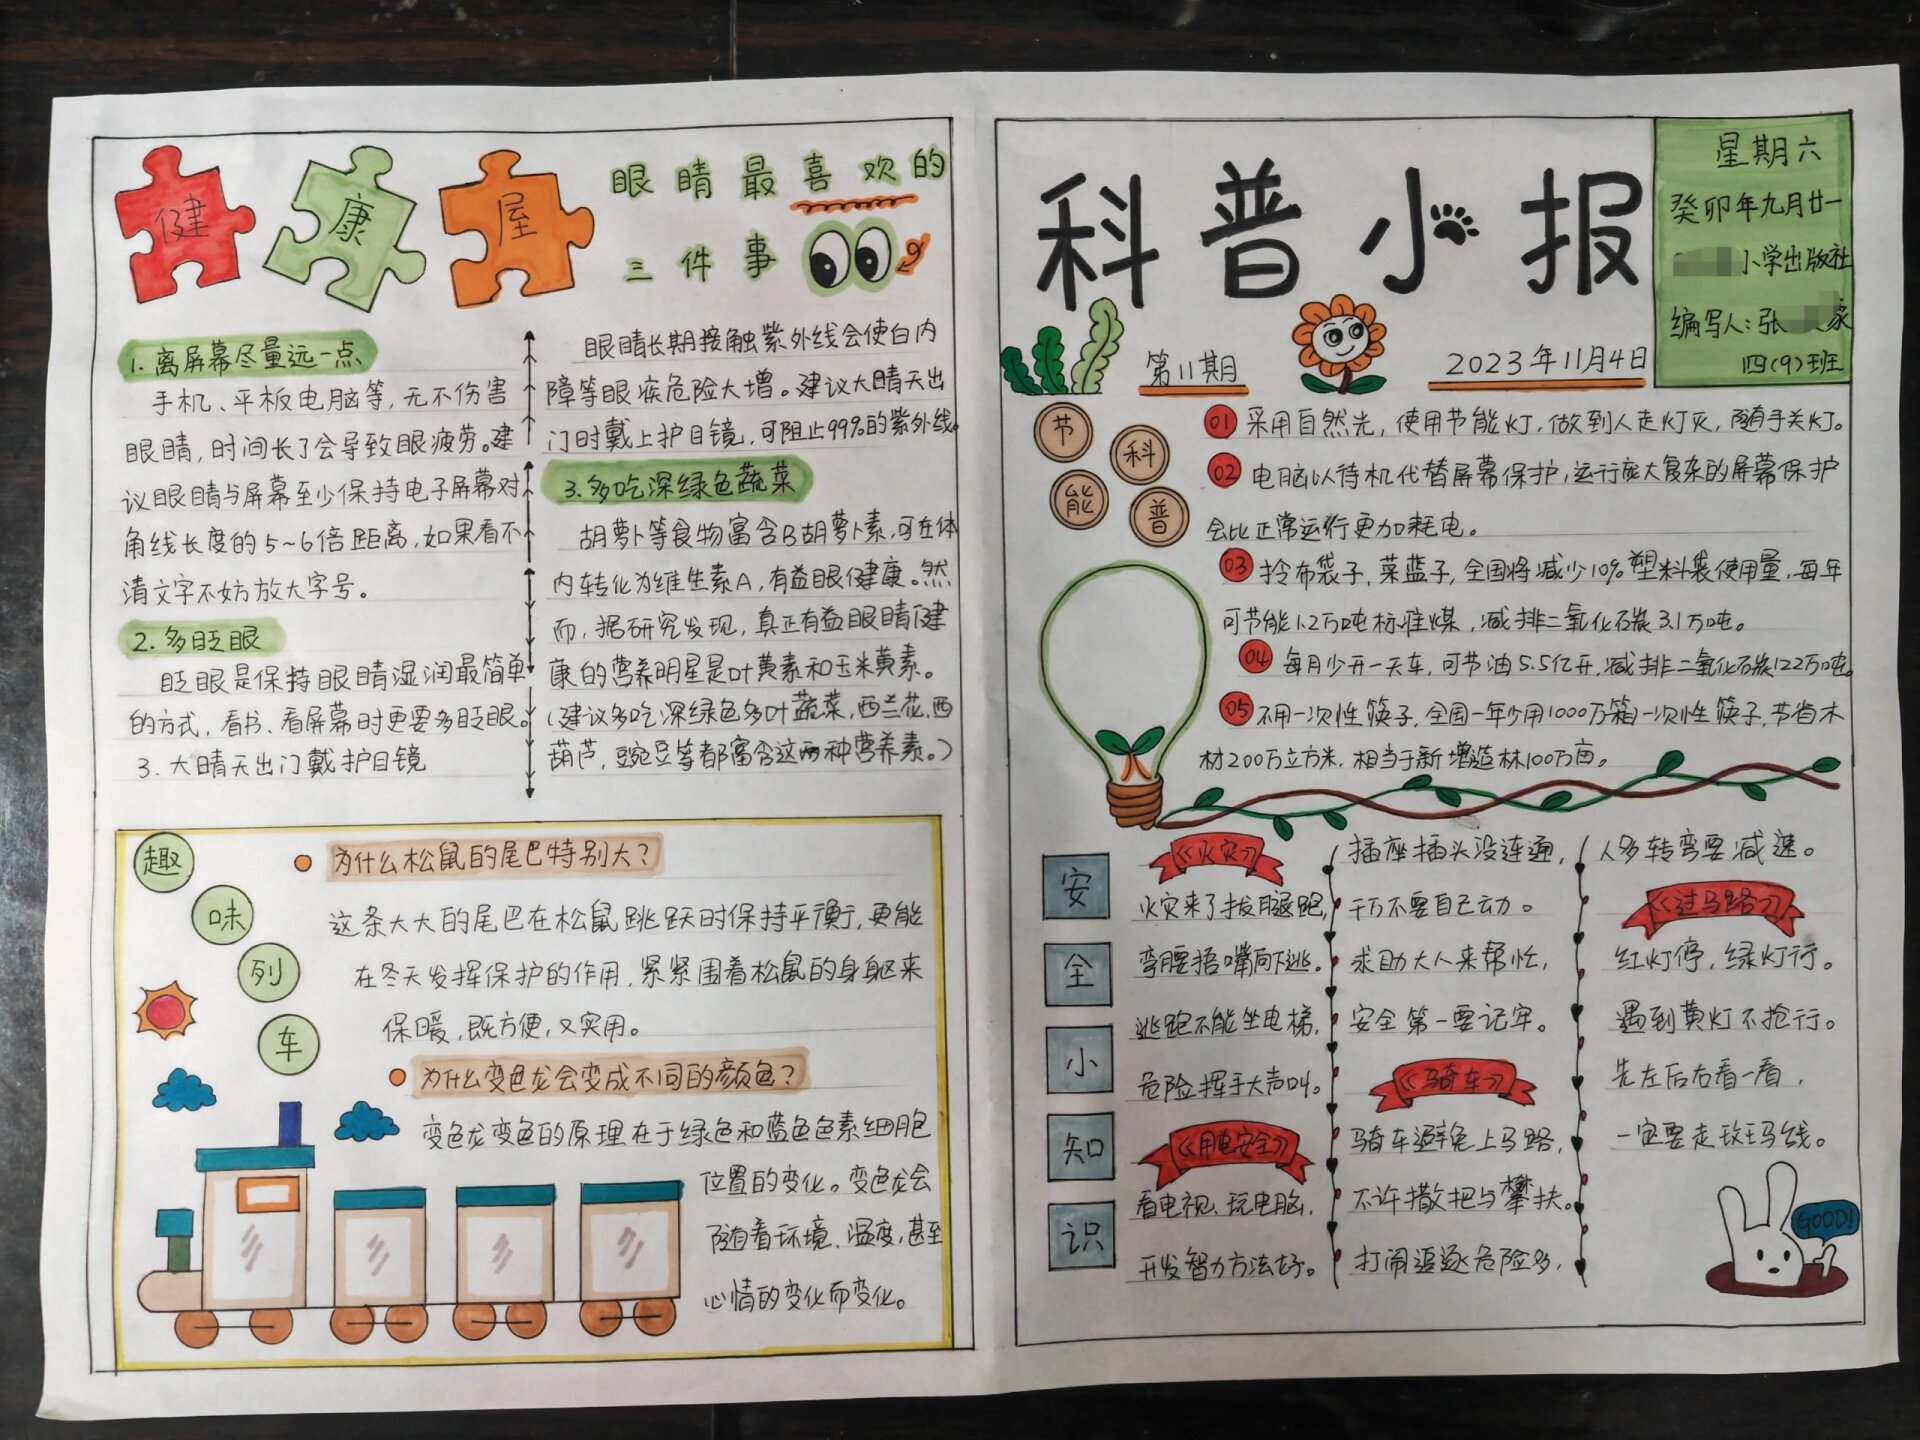 健康屋
眼睛最喜欢的
三件事
1.离屏幕尽量远一点
手机、平板电脑等,无不伤害
眼睛,时间长了会导致眼疲劳。建
议眼睛与屏幕至少保持电子屏幕对
角线长度的5~6倍距离,如果看不
清文字不妨放大字号。
2.多眨眼
眨眼是保持眼睛湿润最简单
的方式,看书、看屏幕时更要多眨眼。
3.大晴天出门戴护目镜
眼睛长期接触紫外线会使白内
障等眼疾危险大增。建议大晴天出
门时戴上护目镜,可阻止99%的紫外线。
3.多吃深绿色蔬菜
胡萝卜等食物富含B胡萝卜素,可在体
内转化为维生素A,有益眼健康。然
而,据研究发现,真正有益眼睛健
康的营养明星是叶黄素和玉米黄素。
(建议多吃深绿色多叶蔬菜,西兰花、西
葫芦,豌豆等都富含这两种营养素。)
趣味列车
为什么松鼠的尾巴特别大?
这条大大的尾巴在松鼠跳跃时保持平衡,更能
在冬天发挥保护的作用,紧紧围着松鼠的身躯来
保暖,既方便,又实用。
为什么变色龙会变成不同的颜色?
变色龙变色的原理在于绿色和蓝色色素细胞
位置的变化。变色龙会
随着环境、温度,甚至
心情的变化而变化。
科普小报
第11期
2023年11月4日
星期六
癸卯年九月廿一
小学出版社
编写人:张 家
四(9)班
节能科普
01 采用自然光,使用节能灯,做到人走灯灭,随手关灯。
02 电脑以待机代替屏幕保护,运行庞大复杂的屏幕保护
会比正常运行更加耗电。
03 拎布袋子,菜蓝子,全国将减少10%塑料袋使用量,每年
可节能1.2万吨标准煤,减排二氧化石炭3.1万吨。
04 每月少开一天车,可节油5.5亿升,减排二氧化石炭122万吨。
05 不用一次性筷子,全国一年少用1000万箱一次性筷子,节省木
材200万立方米,相当于新增造林100万亩。
安全小知识
《火灾》
火灾来了拔腿跑,
弯腰捂嘴向下逃。
逃跑不能坐电梯,
危险挥手大声叫。
《用电安全》
看电视、玩电脑,
开发智力方法好。
插座插头没连通,
千万不要自己动。
求助大人来帮忙,
安全第一要记牢。
《骑车》
骑车避免上马路,
不许撒把与攀扶。
打闹追逐危险多,
人多转弯要减速。
《过马路》
红灯停,绿灯行。
遇到黄灯不抢行。
先左后右看一看,
一定要走斑马线。
GOOD!